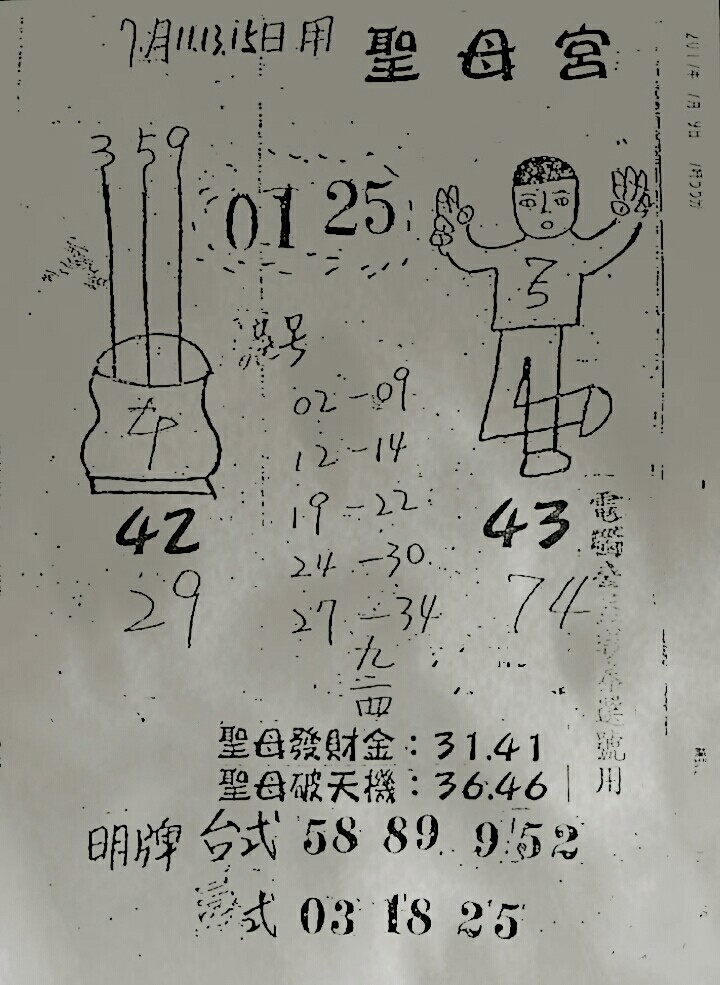 7月11.13.15日用
聖母宮
3 5 9
01 25
7
5
号
02-09
12-14
19-22
24-30
27-34
九
二
四
42
29
43
74
聖母發財金:31.41
聖母破天機:36.46
號用
明牌 台式 58 89 9 52
式 03 18 25